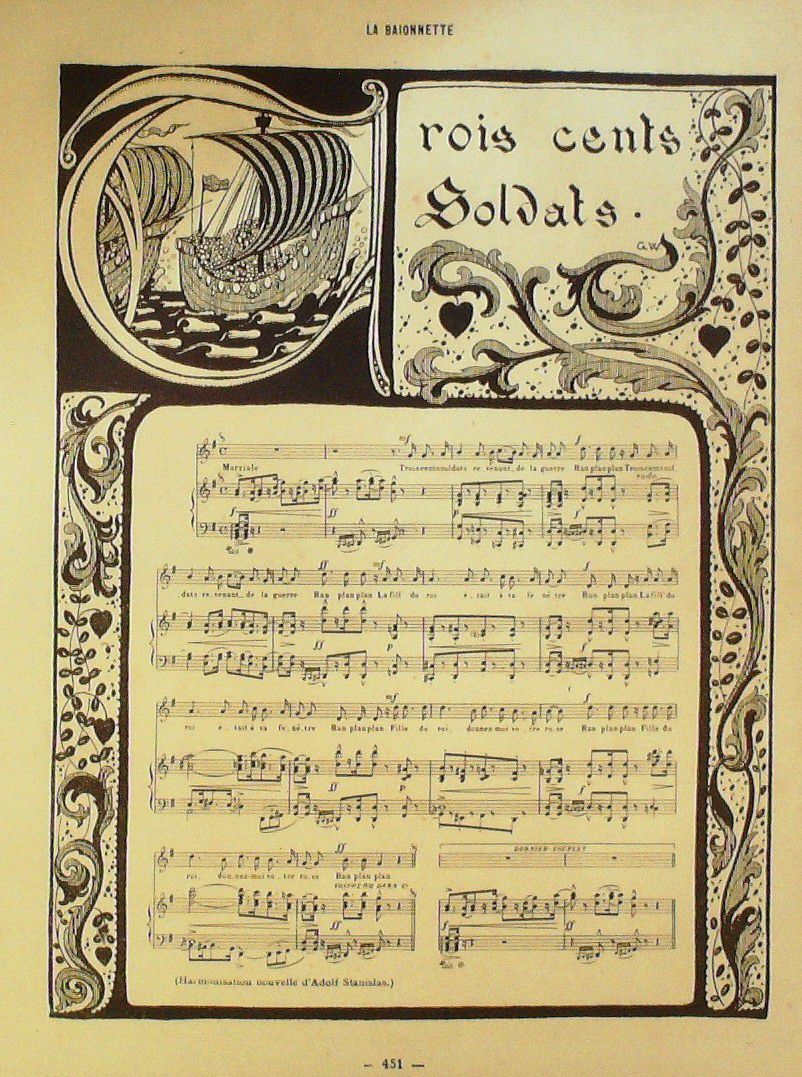 LA BAIONNETTE
Trois cents
Soldats.
G.W
Marziale
mf
f
Troiscentssoldats re venant. de la guerre Ran plan plan Troiscentssol.
f
ff
p
f
ff
mf
f
dats re.venant. de la guerre Ran plan plan La fill' du roi e. tait à sa fe né tre Ran plan plan. La fill' du
ff
p
f
mf
f
roi e. tait à sa fe. né. tre Ran plan plan Fille du roi, donnez-moi vo. tre ro. se Ran plan plan Fille du
ff
p
f
ff
DERNIER COUPLET
roi, don.nez-moi vo. tre ro. se Ran plan plan
ff
f
ff
(Harmonisation nouvelle d'Adolf Stanislas.)
— 451 —